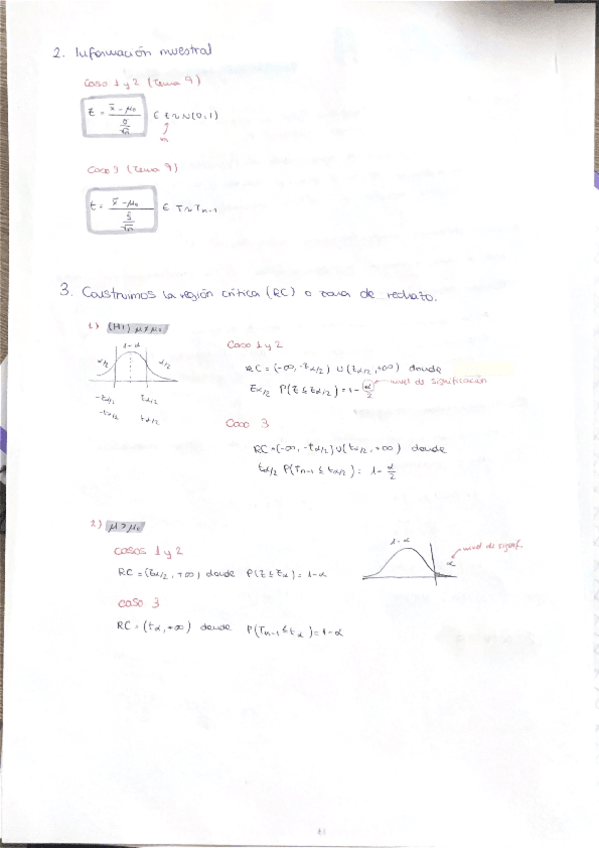 2. Información muestral
Caso 1 y 2 (Tema 9)
z = x̄ - μ₀ / σ/√n ∈ Z ~ N(0,1)
Caso 3 (Tema 9)
t = x̄ - μ₀ / s/√n ∈ T ~ Tn-1
3. Construimos la región crítica (RC) o zona de rechazo.
1) (H1) μ ≠ μ₀
1 - α
α/2 α/2
-zα/2 zα/2
-tα/2 tα/2
Caso 1 y 2
RC = (-∞, -zα/2) ∪ (zα/2, +∞) donde
zα/2 P(Z ≤ zα/2) = 1 - α/2 nivel de significación
Caso 3
RC = (-∞, -tα/2) ∪ (tα/2, +∞) donde
tα/2 P(Tn-1 ≤ tα/2) = 1 - α/2
2) μ > μ₀
casos 1 y 2
RC = (zα/2, +∞) donde P(Z ≤ zα) = 1 - α
1 - α
α
nivel de signif.
caso 3
RC = (tα, +∞) donde P(Tn-1 ≤ tα) = 1 - α